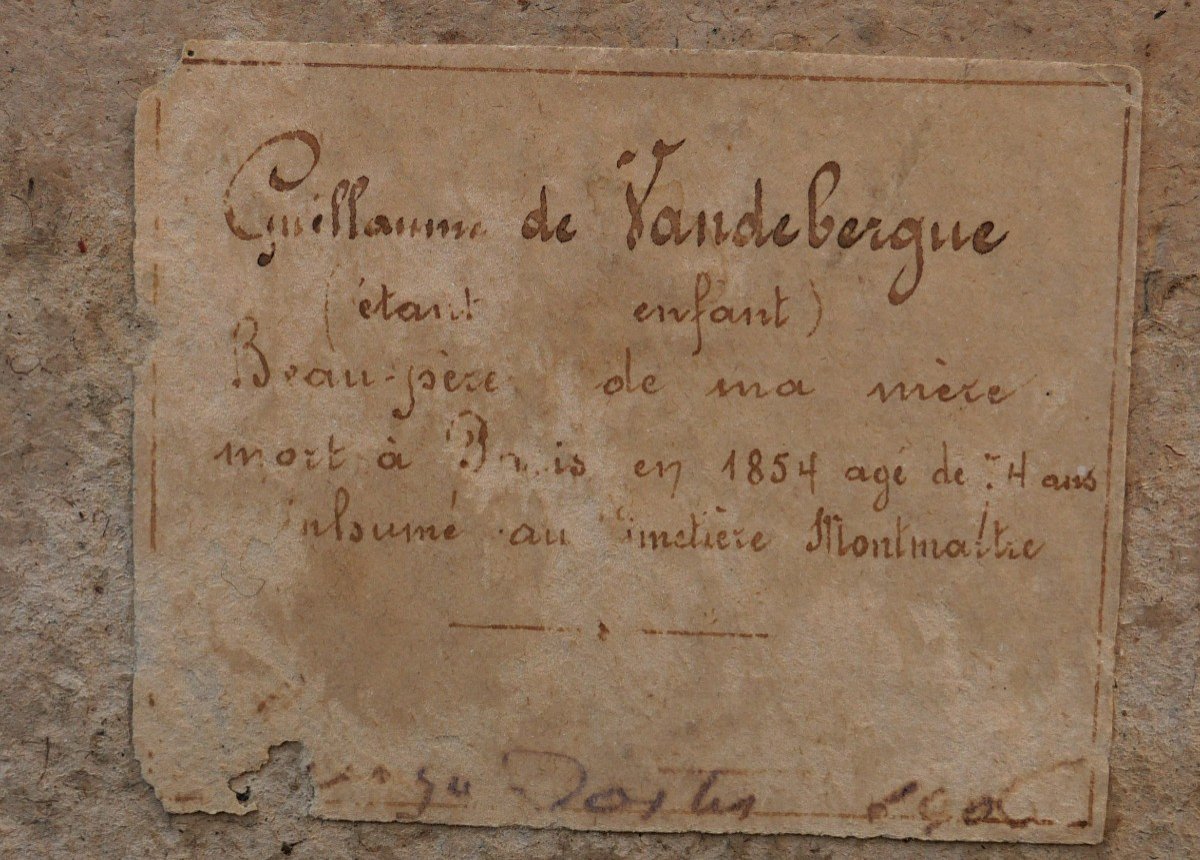 Guillaume de Vandebergue
(étant enfant)
Beau-père de ma mère
mort à Paris en 1854 agé de 74 ans
inhumé au Cimetière Montmartre